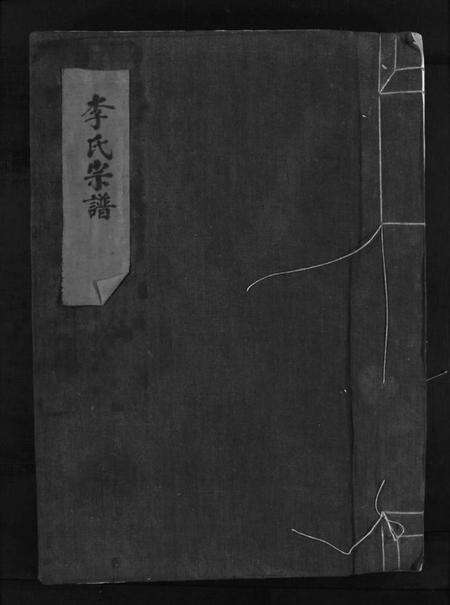 李氏宗譜